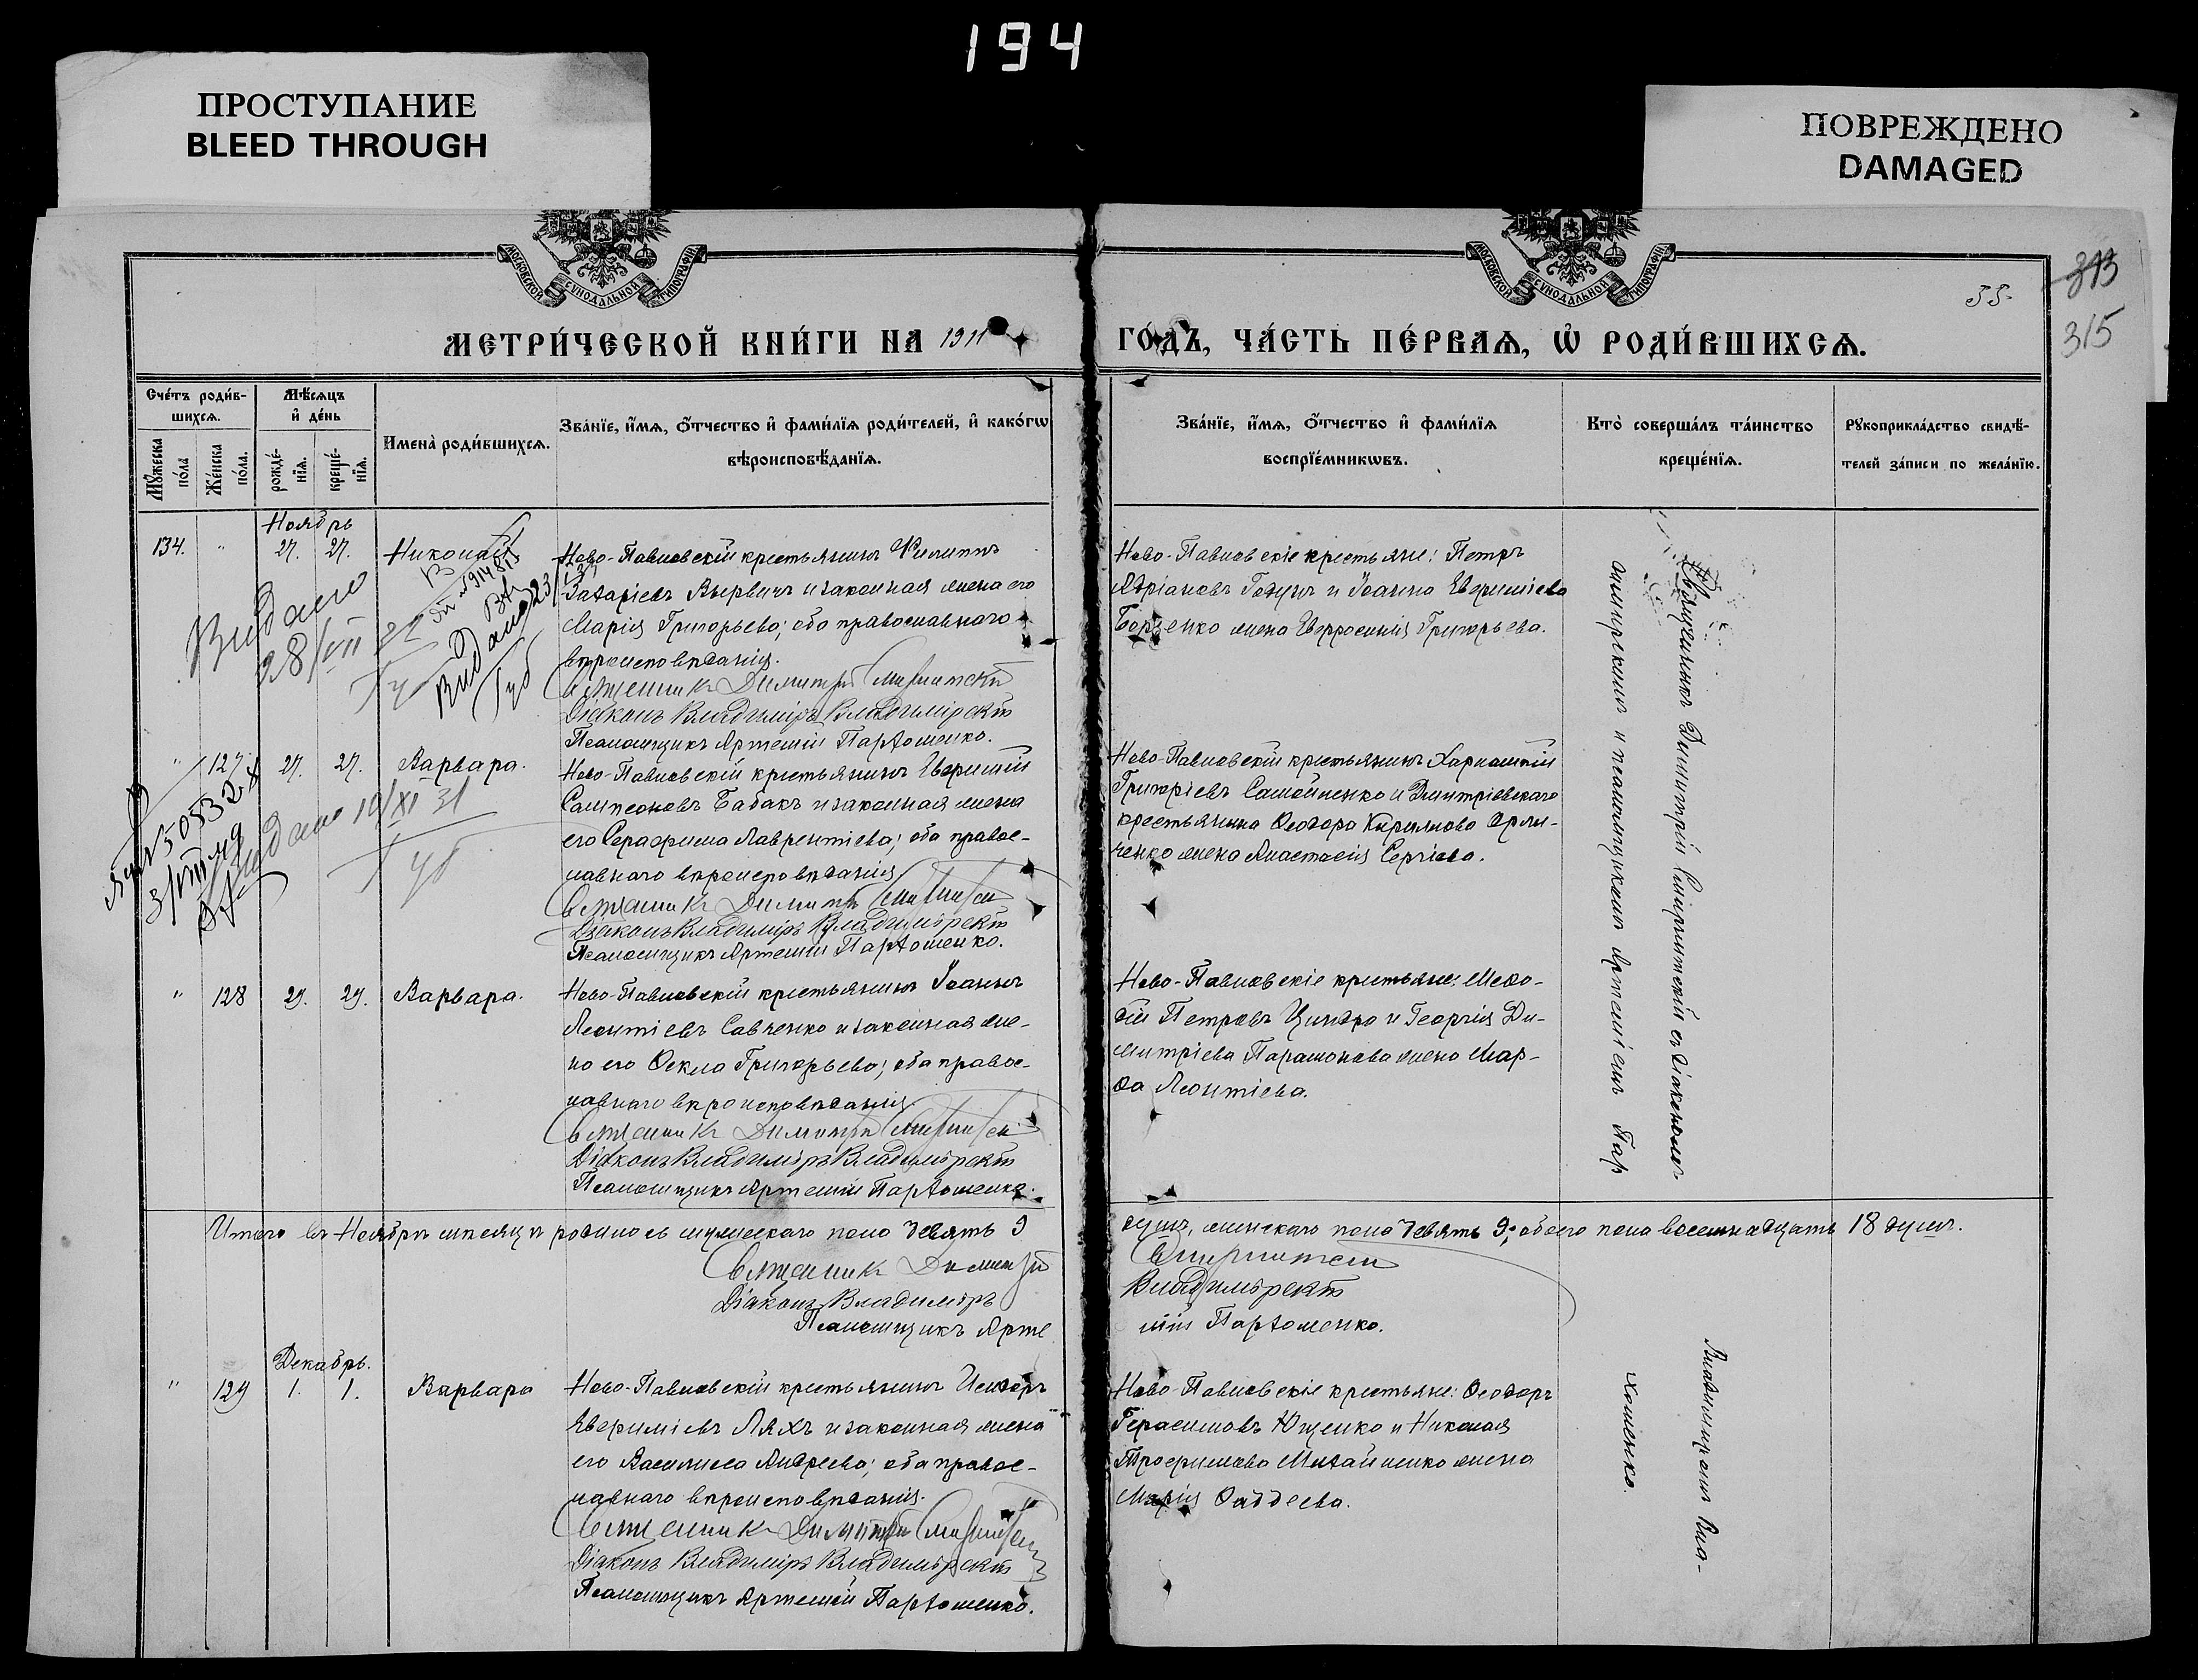 194
ПРОСТУПАНИЕ
BLEED THROUGH
ПОВРЕЖДЕНО
DAMAGED
МОСКОВСКОЙ СѴНОДАЛЬНОЙ ТИПОГРАФІИ
МОСКОВСКОЙ СѴНОДАЛЬНОЙ ТИПОГРАФІИ
55
313
315
МЕТРИ́ЧЕСКОЙ КНИ́ГИ НА 1911
ГО́ДЪ, ЧА́СТЬ ПЕ́РВАѦ, Ѡ҆ РОДИ́ВШИХСѦ.
Сче́тъ роди́в-
шихсѧ.
Мꙋ́жеска
по́ла
Же́нска
по́ла.
Мѣ́сѧцъ
и҆ де́нь
рожде́-
нїѧ.
креще́-
нїѧ.
Имена̀ роди́вшихсѧ.
Зва́нїе, и҆́мѧ, ѻ҆́тчество и҆ фами́лїѧ роди́телей, и҆ како́гѡ
вѣроисповѣ́данїѧ.
Зва́нїе, и҆́мѧ, ѻ҆́тчество и҆ фами́лїѧ
воспрїе́мникѡвъ.
Кто̀ соверша́лъ та́инство
креще́нїѧ.
Рꙋкоприкла́дство свидѣ́-
телей за́писи по жела́нїю.
Ноябрь
134. " 27. 27. Николай
Ново-Павловскій крестьянинъ Филиппъ
Захаріевъ Вырвичъ и законная жена его
Марія Григорьева; оба православнаго
вѣроисповѣданія.
Священникъ Димитрій Спиритскій
Діаконъ Владиміръ Владимірскій
Псаломщикъ Артемій Пархоменко.
Ново-Павловскіе крестьяне: Петръ
Адріановъ Годунъ и Іоанна Евѳиміева
Борзенко жена Евфросинія Григорьева.
Видано
28/VII
Видано 23/
" 127 27. 27. Варвара.
Ново-Павловскій крестьянинъ Евѳимій
Сампсоновъ Бабакъ и законная жена
его Серафима Лаврентіева; оба правос-
лавнаго вѣроисповѣданія
Священникъ Димитрій
Діаконъ Владиміръ Владимірскій
Псаломщикъ Артемій Пархоменко.
Ново-Павловскій крестьянинъ Харлампій
Григоріевъ Самойленко и Дмитріевскаго
крестьянина Ѳеодора Кириллова Орли-
ченко жена Анастасія Сергіева.
Видано 19/XI 31
" 128 29. 29. Варвара.
Ново-Павловскій крестьянинъ Іоаннъ
Леонтіевъ Савченко и законная же-
на его Ѳекла Григорьева; оба правос-
лавнаго вѣроисповѣданія.
Священникъ Димитрій
Діаконъ Владиміръ Владимірскій
Псаломщикъ Артемій Пархоменко.
Ново-Павловскіе крестьяне: Меѳо-
дій Петровъ Циндра и Георгія Ди-
митріева Парамонова жена Мар-
ѳа Леонтіева.
Священникъ Димитрій Спиритскій съ діакономъ
Владимиромъ Вла-
димирскимъ и псаломщикомъ Артеміемъ Пар
хоменко.
Итого въ Ноябрѣ мѣсяцѣ родилось мужескаго пола девять 9
душъ, женскаго пола девять 9; обоего пола восемнадцать 18 душъ.
Священникъ Димитрій
Спиритскій
Діаконъ Владиміръ
Владимірскій
Псаломщикъ Арте
мій Пархоменко.
Декабрь.
" 129 1. 1. Варвара
Ново-Павловскій крестьянинъ Исидоръ
Евѳиміевъ Ляхъ и законная жена
его Василиса Андреева; оба правос-
лавнаго вѣроисповѣданія.
Священникъ Димитрій
Діаконъ Владиміръ Владимірскій
Псаломщикъ Артемій Пархоменко.
Ново-Павловскіе крестьяне: Ѳеодоръ
Герасимовъ Ющенко и Николая
Трофимова Михайленко жена
Марія Ѳаддеева.